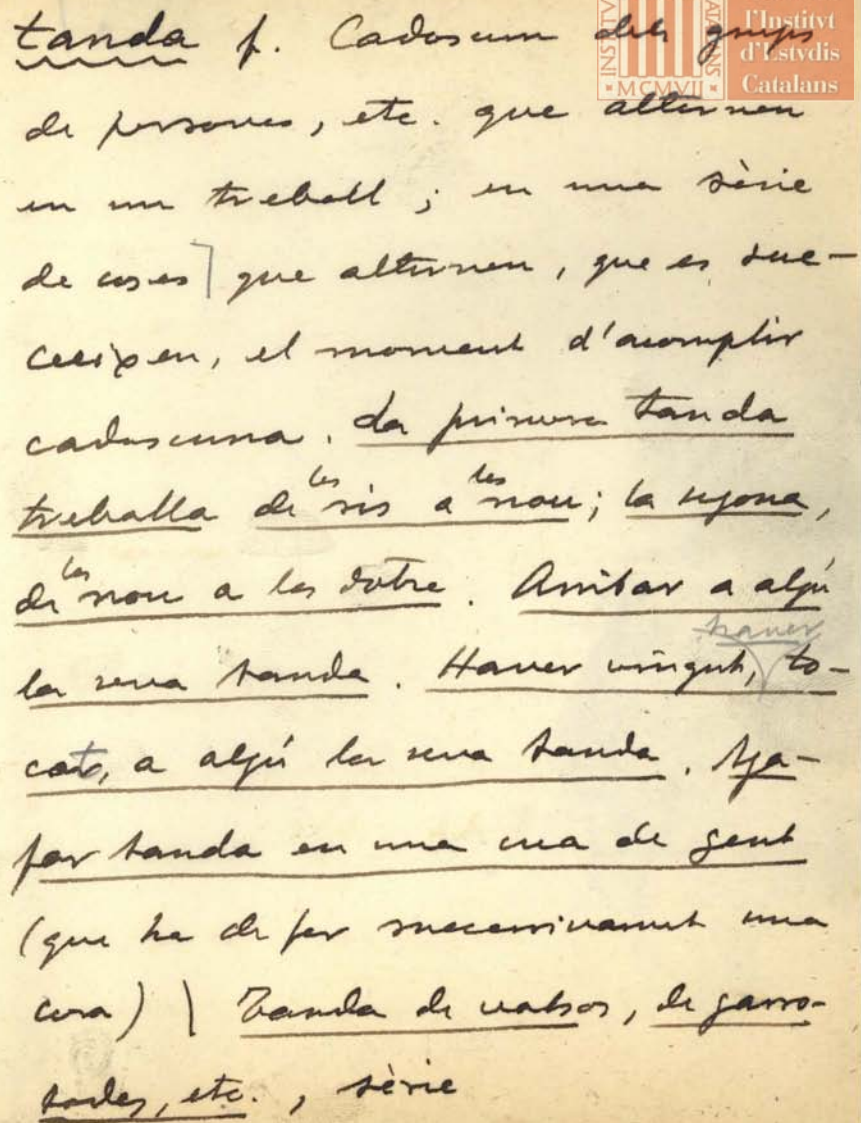 tanda f. Cadascun dels grups
de persones, etc. que alternen
en un treball; en una sèrie
de coses] que alternen, que es suc-
ceeixen, el moment d'acomplir
cadascuna. La primera tanda
treballa de les sis a les nou; la segona,
de les nou a les dotze. Arribar a algú
la seva tanda. Haver vingut, haver to-
cat, a algú la seva tanda. Aga-
far tanda en una cua de gent
(que ha de fer successivament una
cosa) | Tanda de valsos, de garro-
tades, etc., sèrie
MCMVII
l'Institvt
d'Estvdis
Catalans